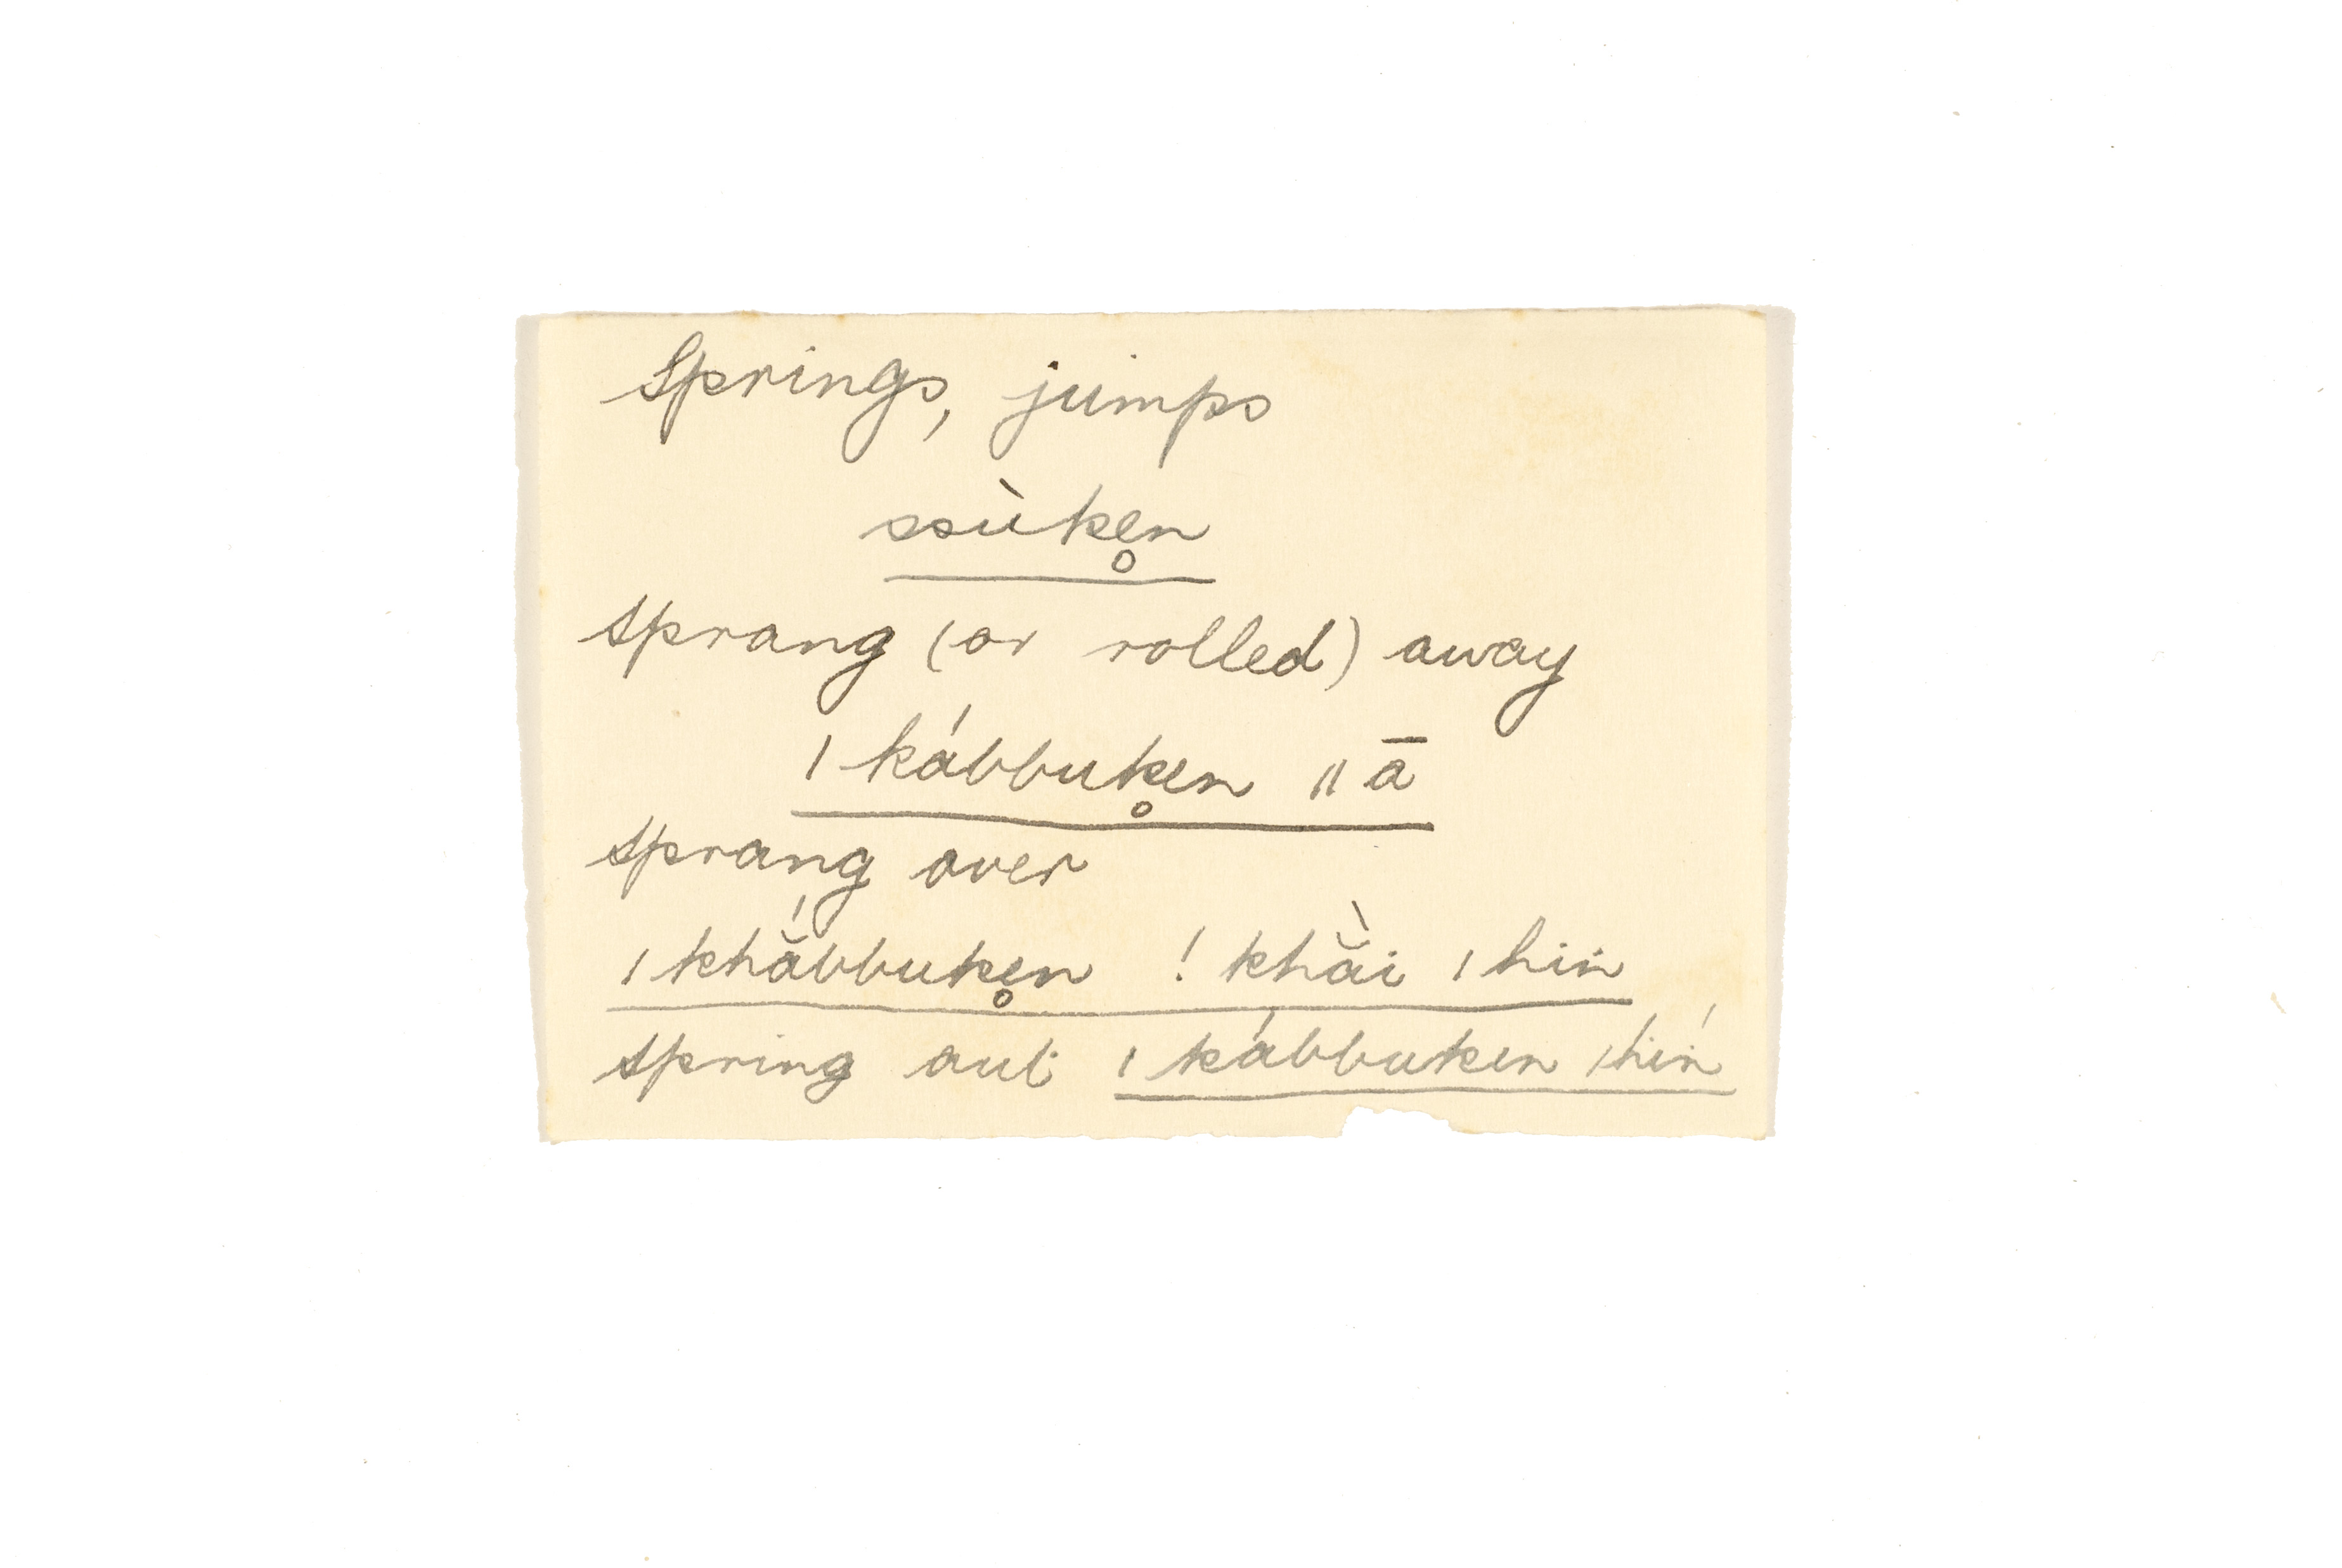 Springs, jumps
ssùke̥n
Sprang (or rolled) away
ǀ kábbuke̥n ǁ ā
Sprang over
ǀ khắbbuke̥n ! khằi ǀ hiṅ
Spring out ǀ kábbuken ǀ hiṅ́